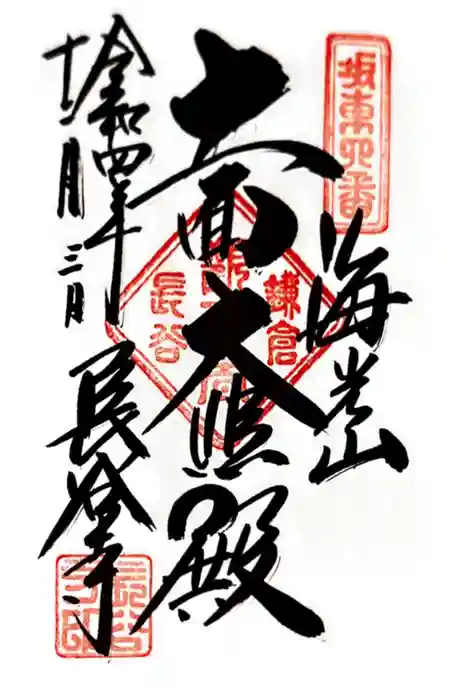 坂東四番
海光山
鎌倉
長谷
十一面大悲殿
令和四年
十二月三日
長谷寺
長谷寺印